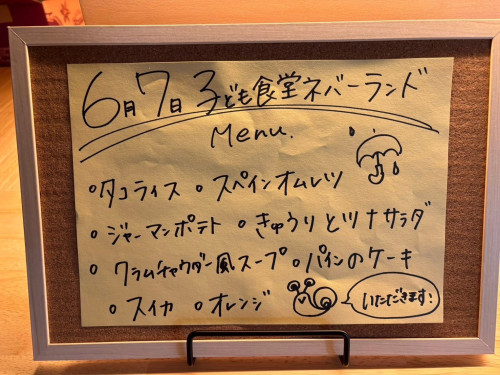 6月7日 子ども食堂ネバーランド
Menu.
・タコライス ・スペインオムレツ
・ジャーマンポテト ・きゅうりとツナサラダ
・クラムチャウダー風スープ ・パインのケーキ
・スイカ ・オレンジ
いただきます!